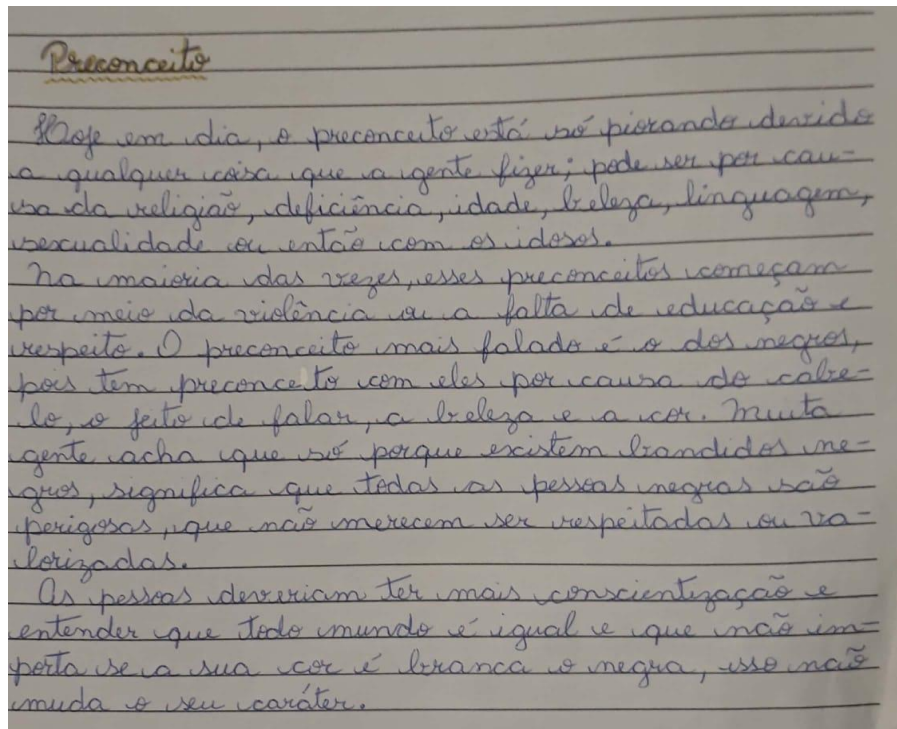 Preconceito
Hoje em dia, o preconceito está só piorando devido
a qualquer coisa que a gente fizer; pode ser por cau-
sa da religião, deficiência, idade, beleza, linguagem,
sexualidade ou então com os idosos.
Na maioria das vezes, esses preconceitos começam
por meio da violência ou a falta de educação e
respeito. O preconceito mais falado é o dos negros,
pois tem preconceito com eles por causa do cabe-
lo, o jeito de falar, a beleza e a cor. Muita
gente acha que só porque existem bandidos ne-
gros, significa que todas as pessoas negras são
perigosas, que não merecem ser respeitadas ou va-
lorizadas.
As pessoas deveriam ter mais conscientização e
entender que todo mundo é igual e que não im-
porta se a sua cor é branca o negra, isso não
muda o seu caráter.